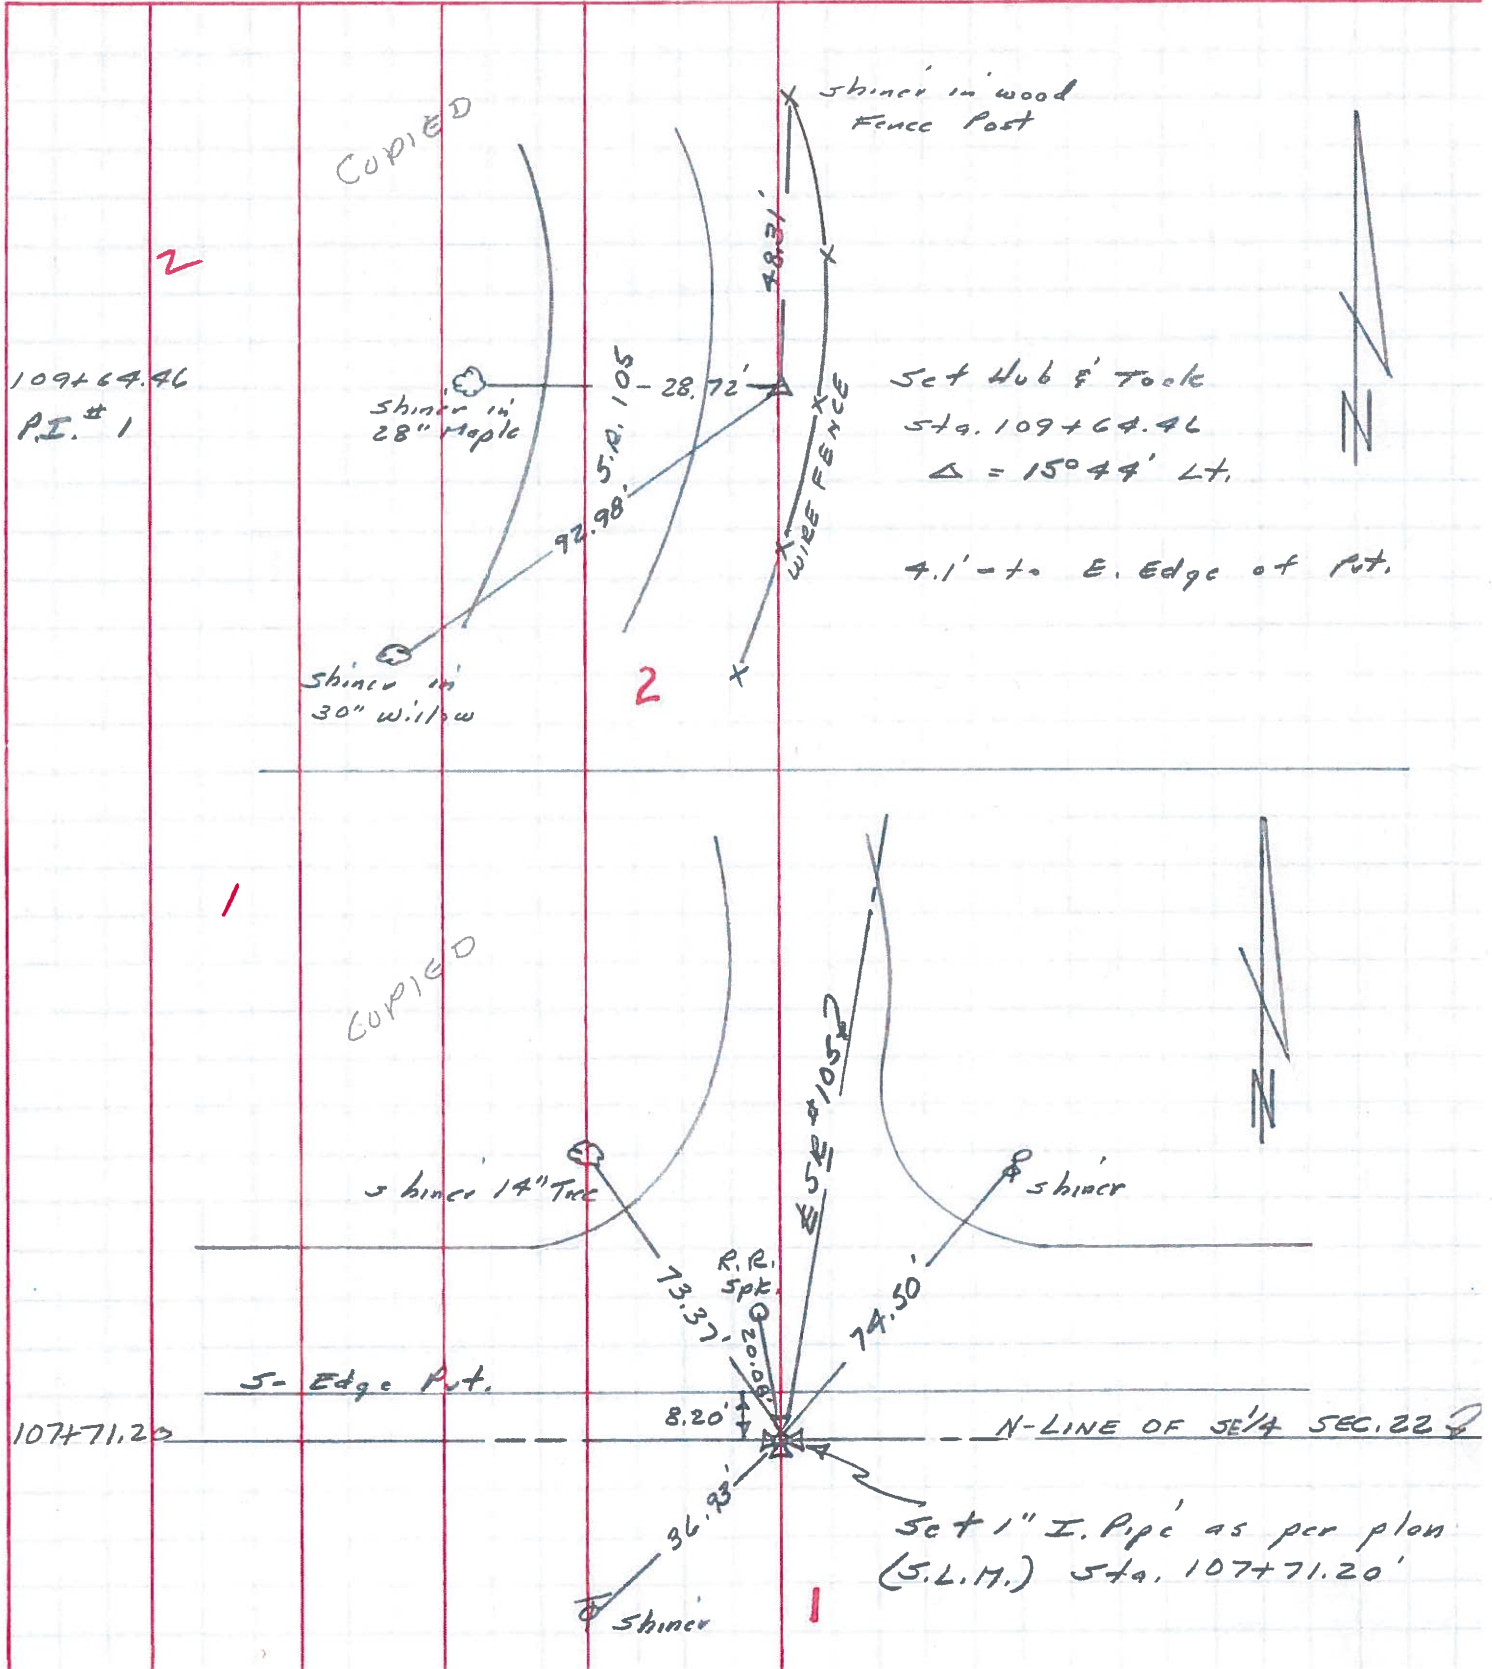 COPIED
shiner in wood
Fence Post
2
48.31'
109+64.46
P.I. # 1
shiner in
28" Maple
S.R. 105
28.72'
WIRE FENCE
Set Hub & Tack
sta. 109+64.46
Δ = 15° 44' Lt.
4.1' - to E. Edge of Pvt.
92.98'
shiner in
30" willow
2
1
COPIED
N
N
℄ SR #105
shiner 14" Tree
shiner
R.R.
Spk.
73.37'
20.08'
74.50'
S- Edge Pvt.
8.20'
107+71.20
N-LINE OF SE1/4 SEC. 22
36.93'
Set 1" I. Pipe as per plan
(S.L.M.) Sta. 107+71.20'
shiner
1